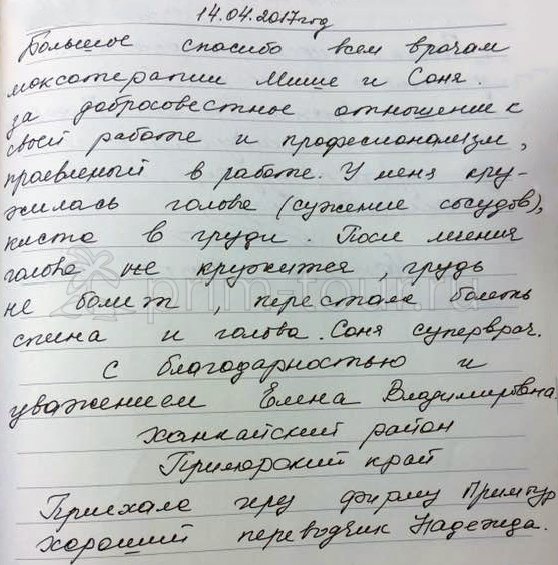 14.04.2017год
Большое спасибо всем врачам
моксотерапии Мише и Соня.
за добросовестное отношение к
своей работе и професионализм,
проевленый в работе. У меня кру-
жилась голова (сужение сосудов),
киста в груди. После лечения
голова не кружится, грудь
не болит, перестала болеть
спина и голова. Соня суперврач.
С благодарностью и
уважением Елена Владимировна.
Ханкайский район
Приморский край
Приехала через фирму Примтур
Хороший переводчик Надежда.
prim-tour.ru